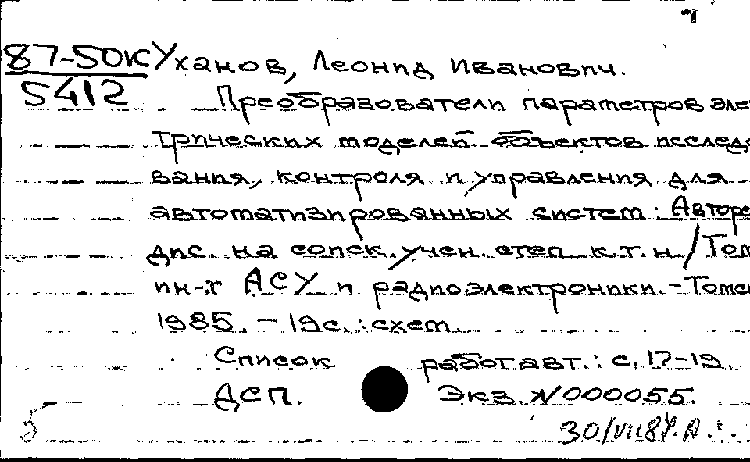 87-50К Уханов, Леонид Иванович.
5412 Преобразователи параметров элек
трических моделей объектов исследо
вания, контроля и управления для
автоматизированных систем: Авторе
дис. на соиск. учен. степ. к.т.н/Том
ин-т АСУ и радиоэлектроники.-Томс
1985. - 19с.: схем.
Список работ авт.: с. 17-19.
ДСП. Экз. N000055.